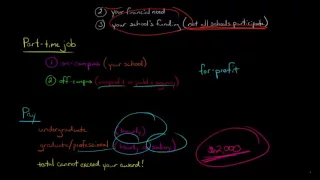 ② your financial need
③ your school's funding (not all schools participate)
Part-time job
① on-campus (your school)
② off-campus (nonprofit or public agency)
for-profit
Pay
undergraduate (hourly)
graduate/professional (hourly or salary)
$2,000
total cannot exceed your award!